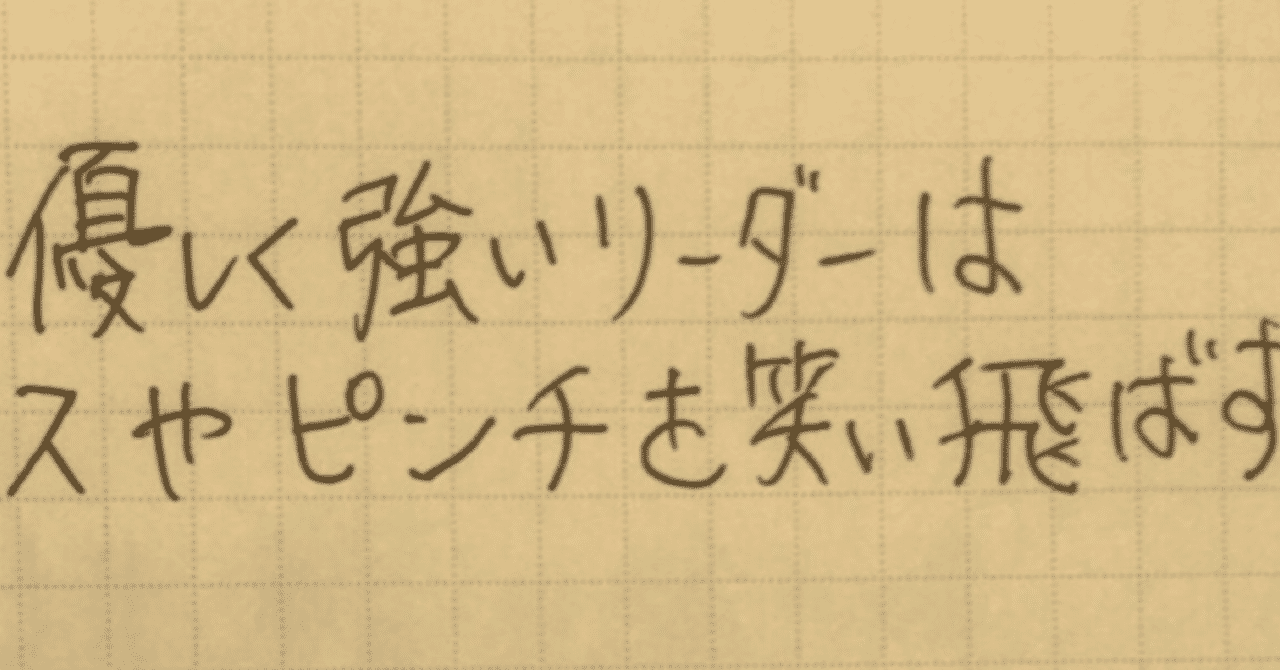 優しく強いリーダーは
スやピンチを笑い飛ばす